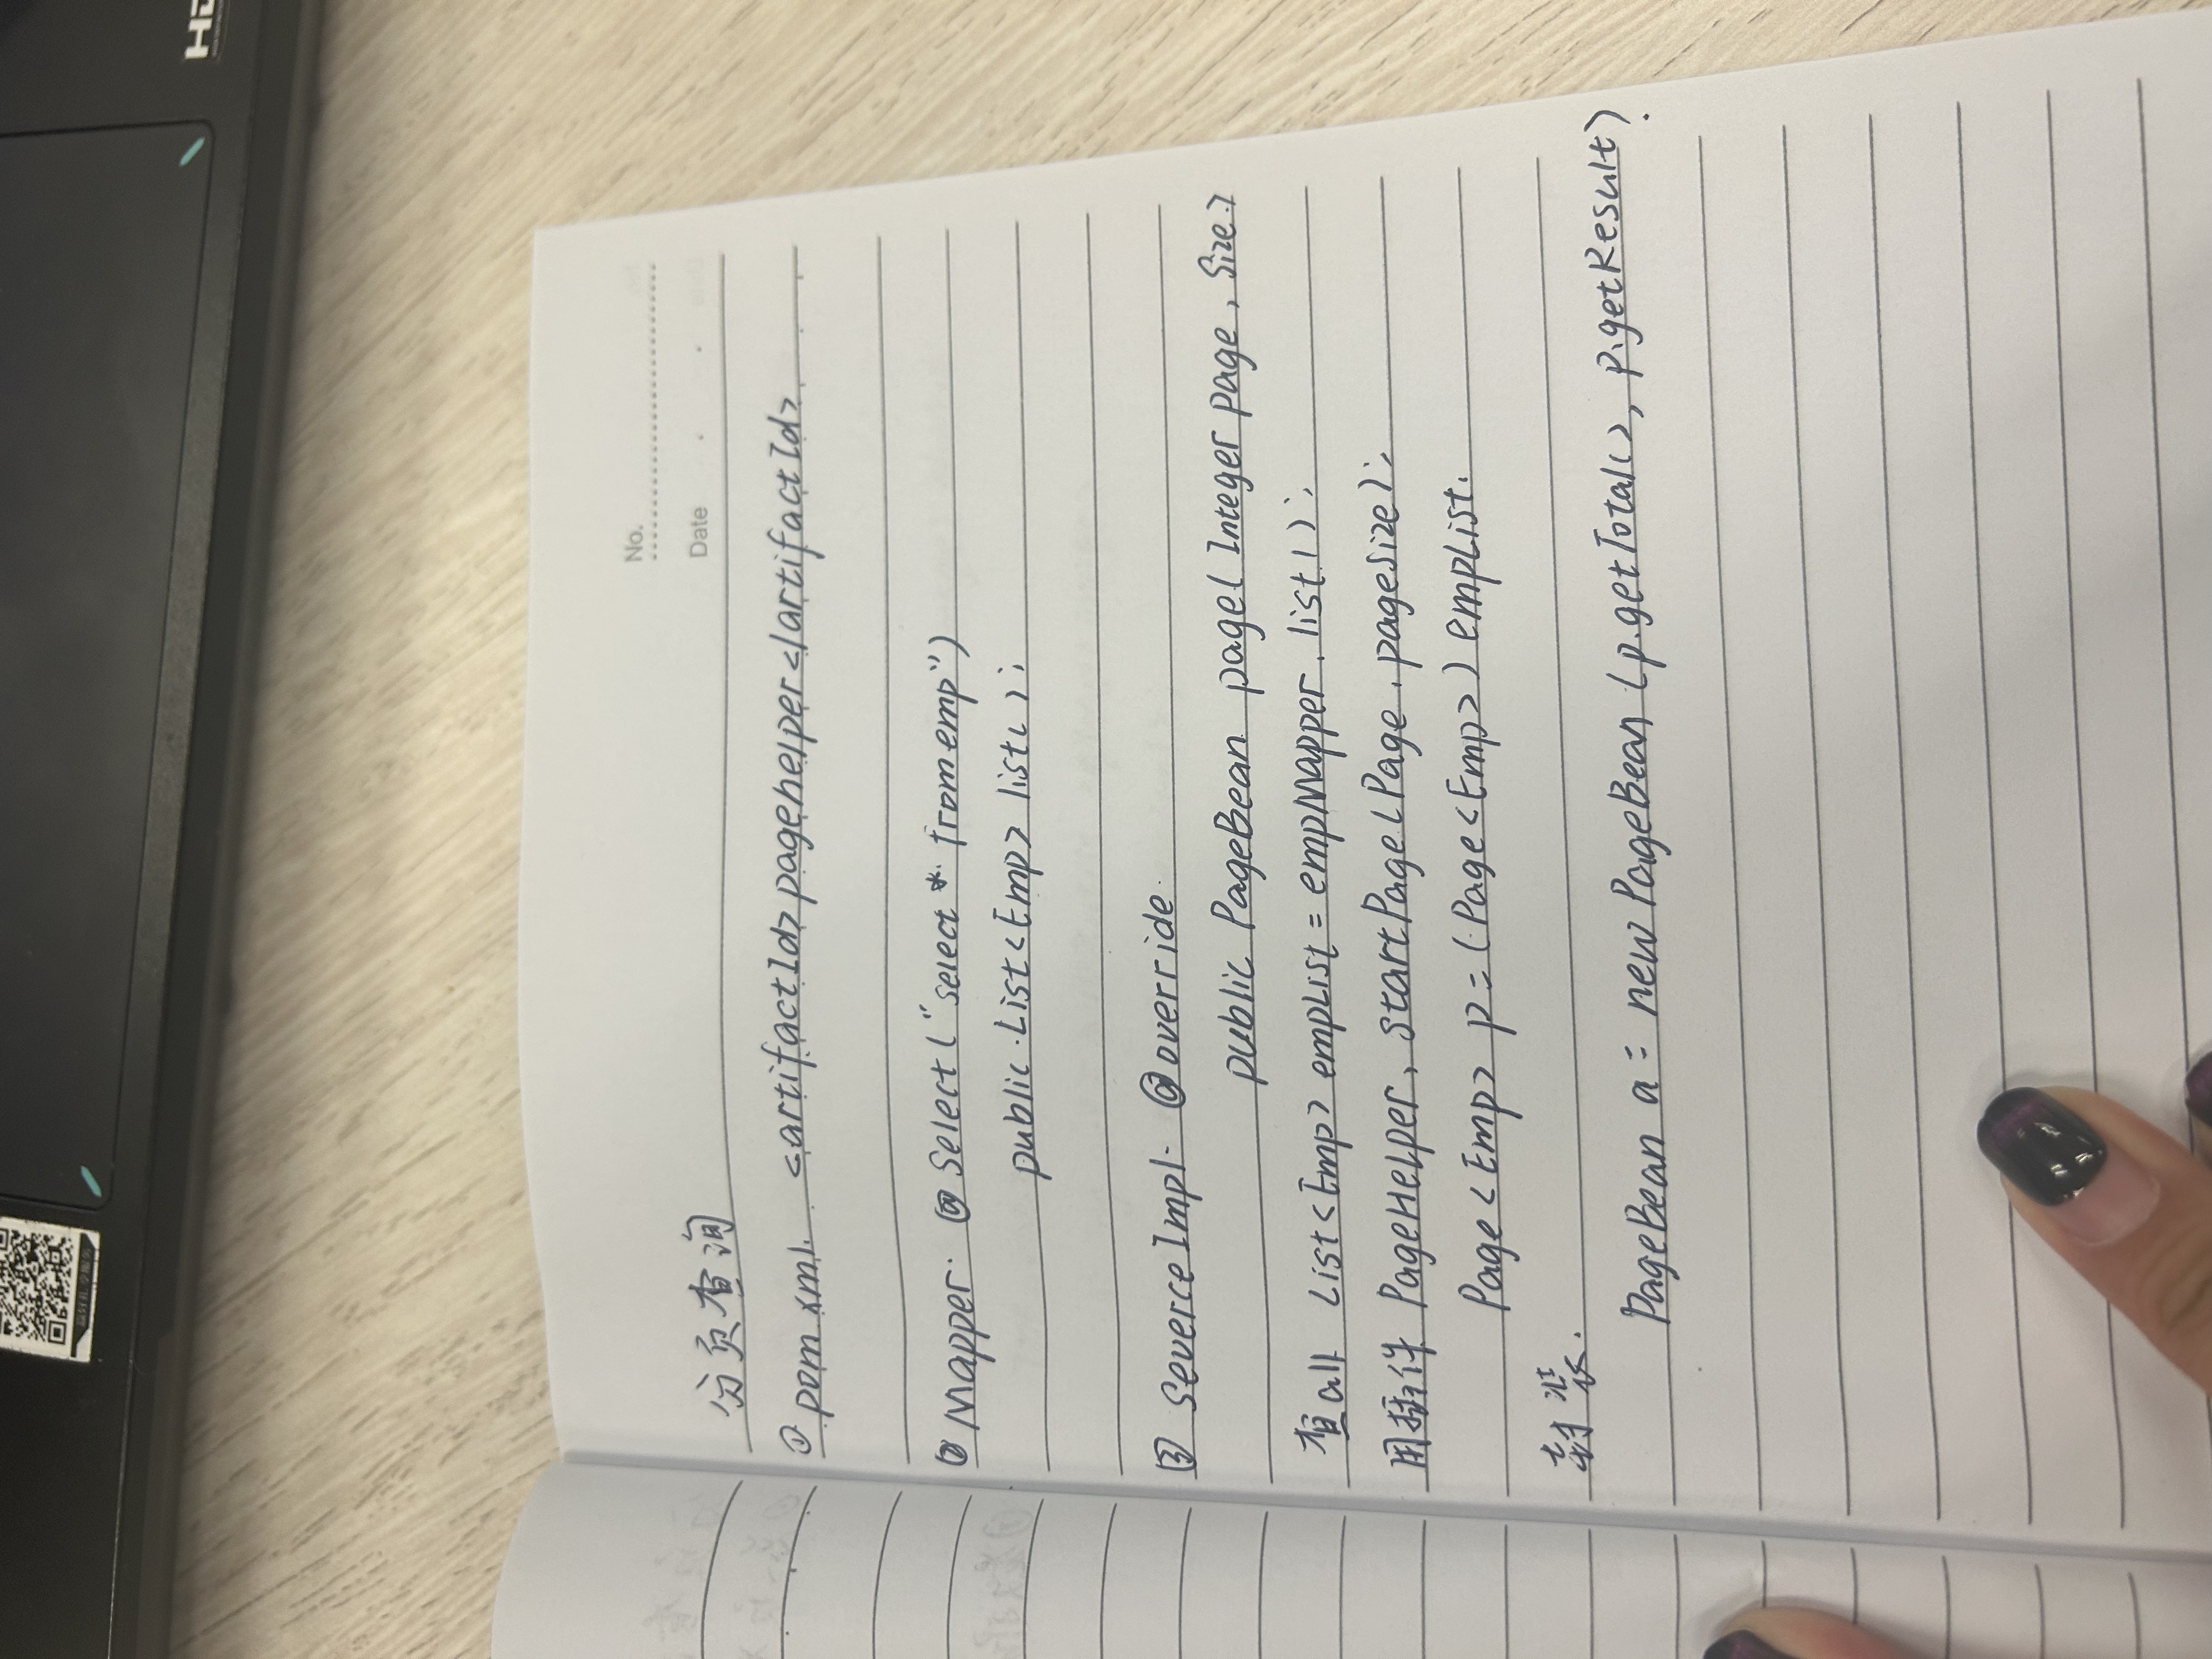 HD
No.
Date
分页查询
① pom xml. <artifactId>pagehelper</artifactId>
② Mapper. @Select("select * from emp")
public List<Emp> list();
③ SeverceImpl. @override.
public PageBean page(Integer page, Size)
查all List<Emp> empList = empMapper.list();
用插件 PageHelper, startPage(Page, pageSize);
Page<Emp> p = (Page<Emp>) empList.
封装.
PageBean a = new PageBean (p.getTotal(), p.getResult)